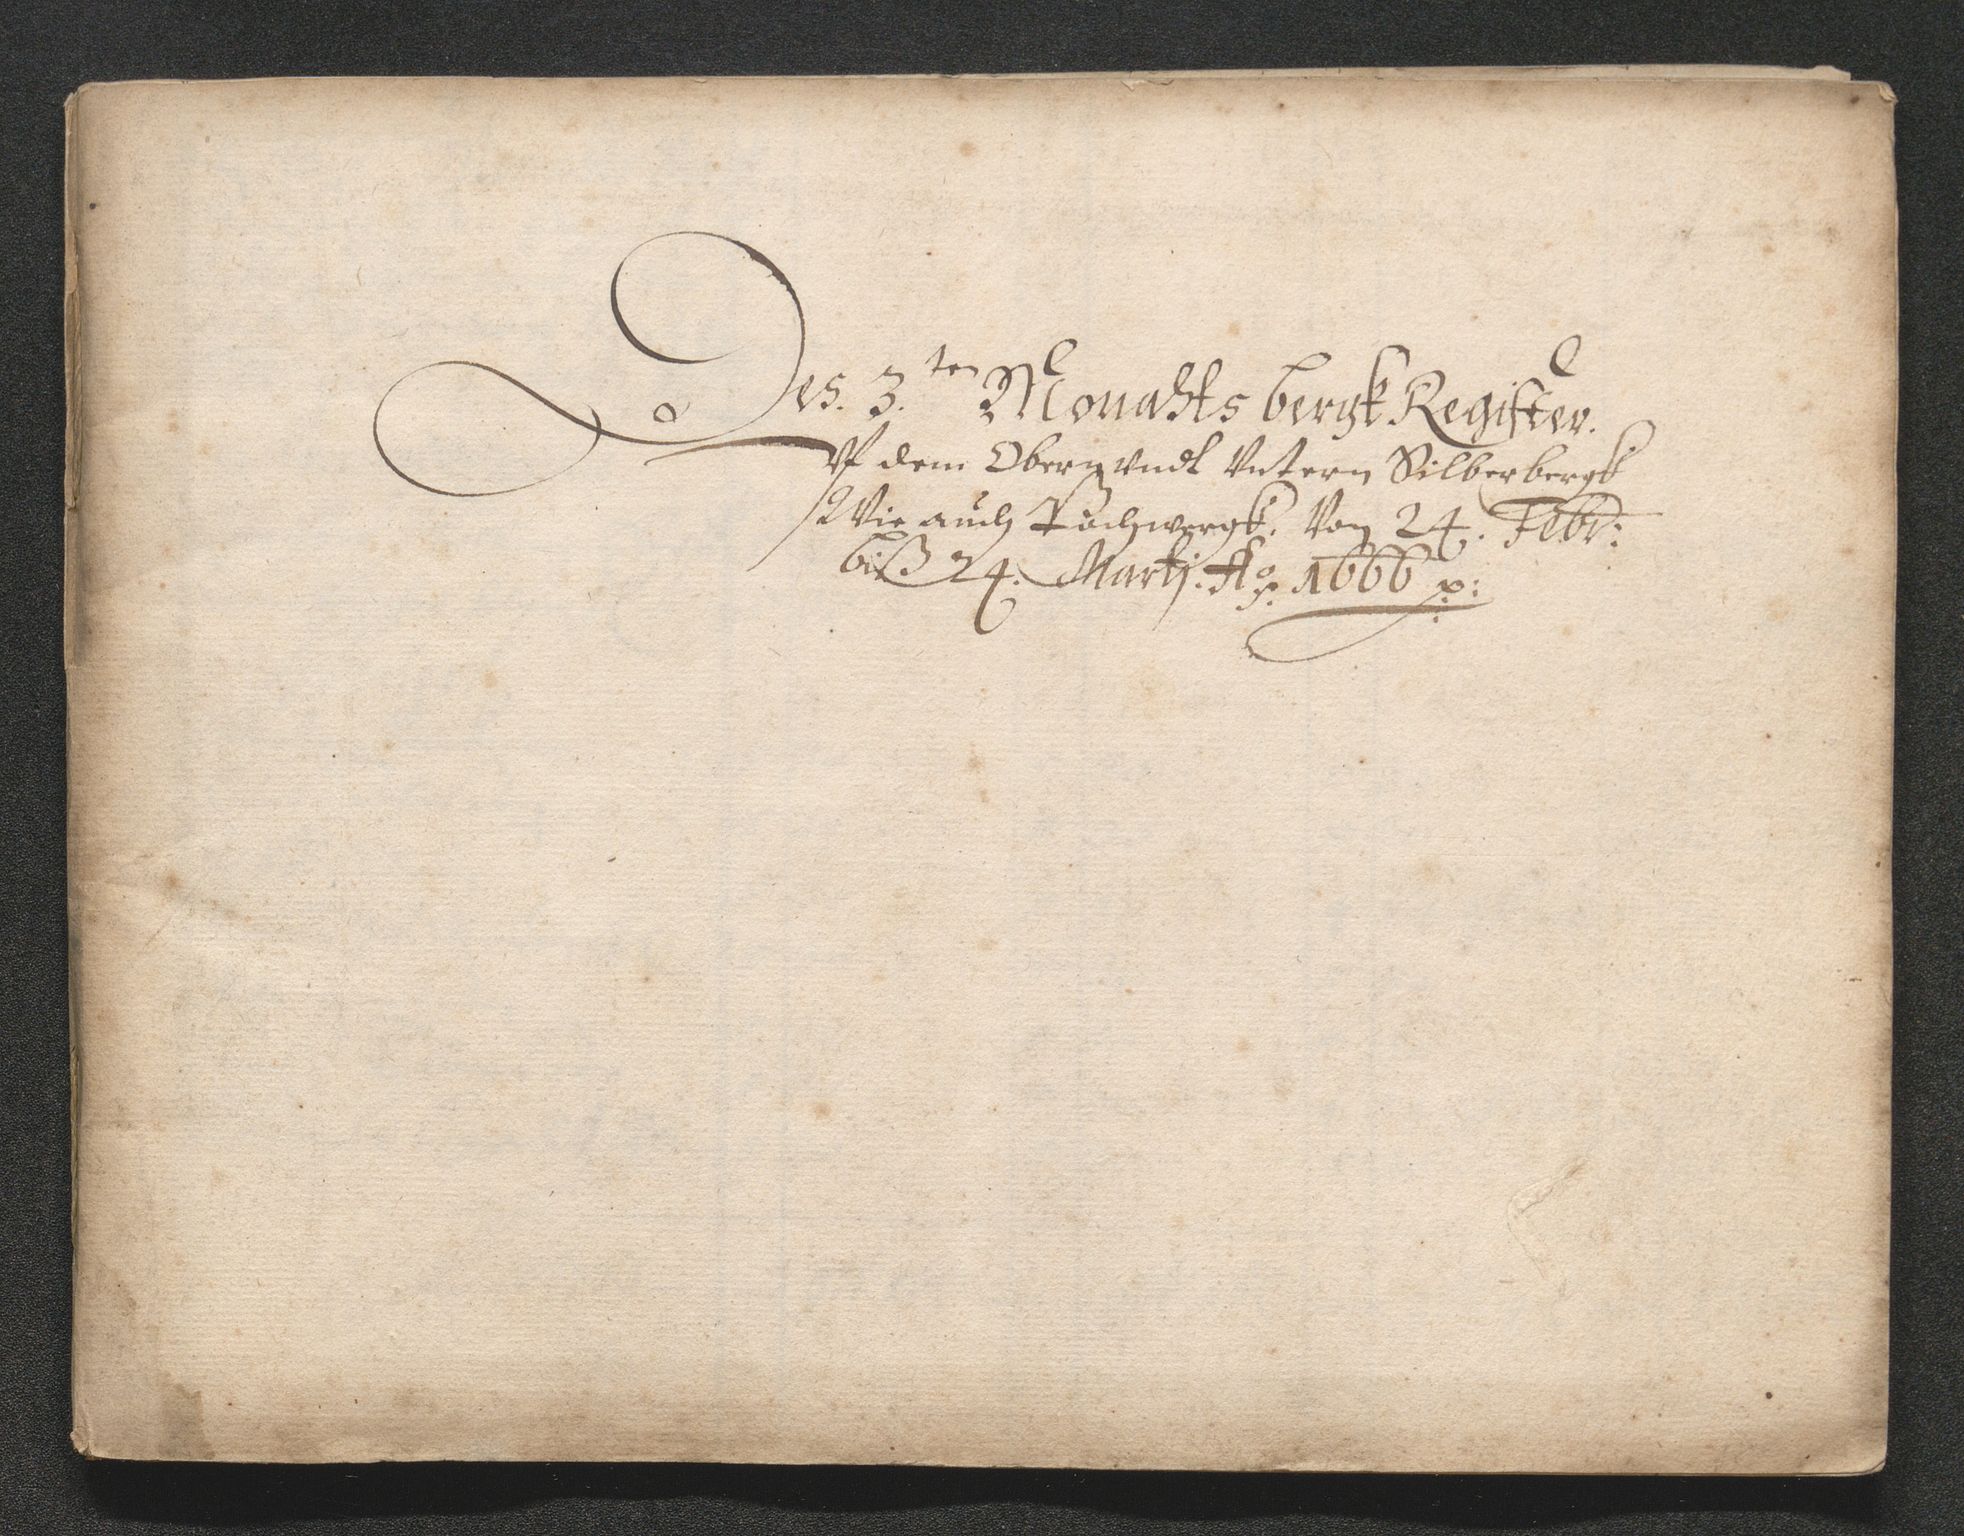 Des. 3.ten Monahts bergk Register.
Vf dem Obern vndt Vntern Silberbergk
Wie auch Puchwergk. Von 24. Febr:
biß 24. Martj. Ao. 1666 p: